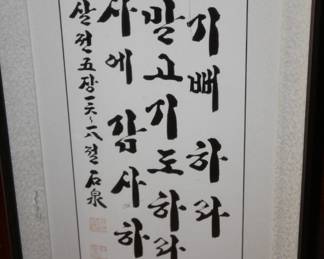 기뻐하라
말고기도하라
사에감사하
살전五장一六~一八절 石泉